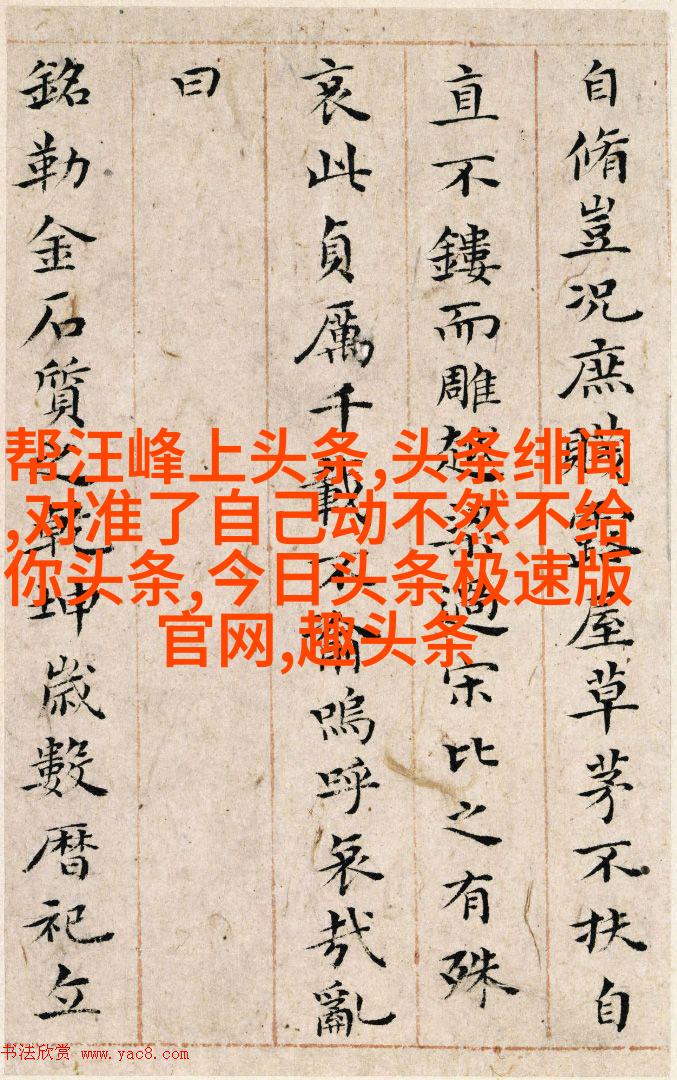 自脩豈况庶屋草茅不扶自
直不鏤而雕越梁過宋比之有殊
哀此貞厲千載不渝嗚呼哀哉亂
曰
銘勒金石質之乾坤歲數曆祀立
帮汪峰上头条,头条绯闻
,对准了自己动不然不给
你头条,今日头条极速版
官网,趣头条
书法欣赏 www.yac8.com